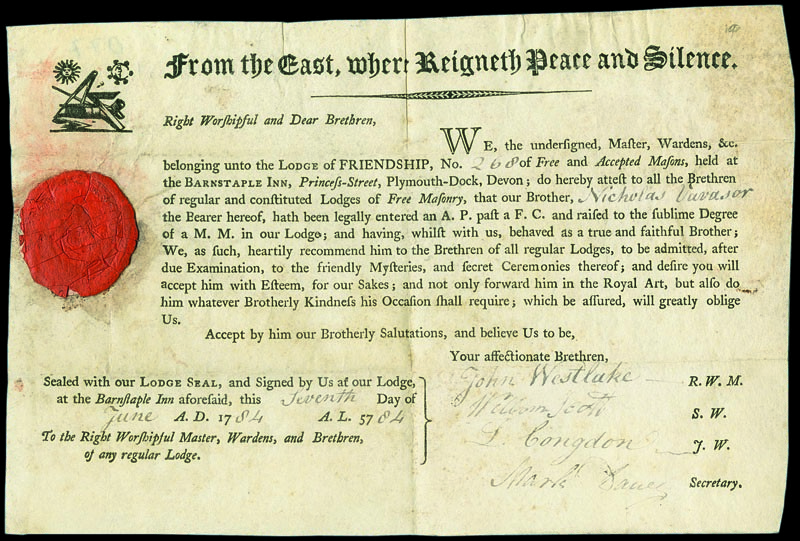 From the East, where Reigneth Peace and Silence.
Right Worſhipful and Dear Brethren,
WE, the undersigned, Maſter, Wardens, &c.
belonging unto the LODGE of FRIENDSHIP, No. 268 of Free and Accepted Maſons, held at
the BARNSTAPLE INN, Princeſs-Street, Plymouth-Dock, Devon; do hereby atteſt to all the Brethren
of regular and conſtituted Lodges of Free Maſonry, that our Brother, Nicholas Vavasor
the Bearer hereof, hath been legally entered an A. P. paſt a F. C. and raiſed to the ſublime Degree
of a M. M. in our Lodge; and having, whilſt with us, behaved as a true and faithful Brother;
We, as ſuch, heartily recommend him to the Brethren of all regular Lodges, to be admitted, after
due Examination, to the friendly Myſteries, and ſecret Ceremonies thereof; and deſire you will
accept him with Eſteem, for our Sakes; and not only forward him in the Royal Art, but alſo do
him whatever Brotherly Kindneſs his Occaſion ſhall require; which be aſſured, will greatly oblige
Us.
Accept by him our Brotherly Salutations, and believe Us to be,
Your affectionate Brethren,
Sealed with our LODGE SEAL, and Signed by Us at our Lodge,
at the Barnſtaple Inn aforeſaid, this Seventh Day of
June A. D. 1784 A. L. 5784
To the Right Worſhipful Master, Wardens, and Brethren,
of any regular Lodge.
John Westlake R. W. M.
Scott S. W.
Congdon J. W.
Mark Secretary.